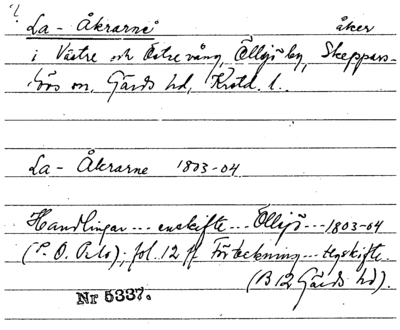 La - Åkrarne åker
i Västre och Östre vång, Ollsjö by, Skeppars-
lövs sn, Gärds hd, Krstd. l.
La - Åkrarne 1803-04
Handlingar --- enskifte -- Ollsjö --- 1803-04
fol. 12 ff Förteckning --- Hyskifte.
(B 12 Gärds hd).
Nr 5337.